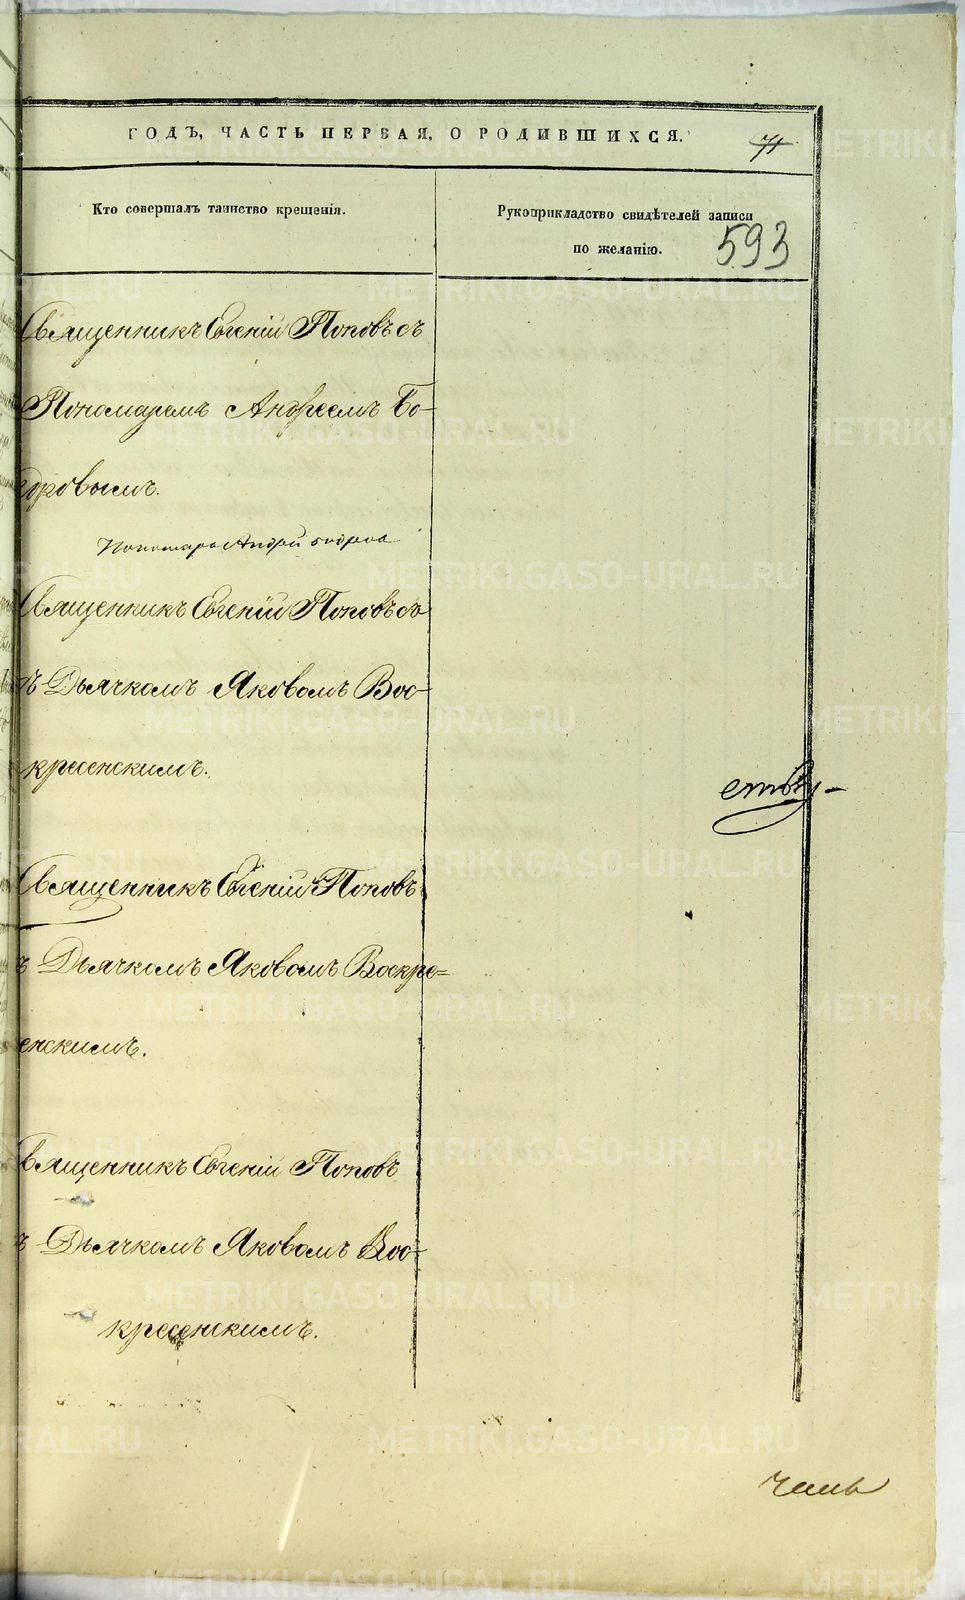 ГОДЪ, ЧАСТЬ ПЕРВАЯ, О РОДИВШИХСЯ. 71
Кто совершалъ таинство крещенія.
Рукоприкладство свидѣтелей записи
по желанію.
593
Священникъ Евгеній Поповъ съ
Пономаремъ Андреемъ Бо-
дровымъ.
Пономарь Андрей Бодровъ
Священникъ Евгеній Поповъ съ
Дьячкомъ Яковомъ Вос-
кресенскимъ.
Священникъ Евгеній Поповъ
ъ Дьячкомъ Яковомъ Воскре=
сенскимъ.
вященникъ Евгеній Поповъ
ъ Дьячкомъ Яковомъ Вос-
кресенскимъ.
METRIKI.GASO-URAL.RU